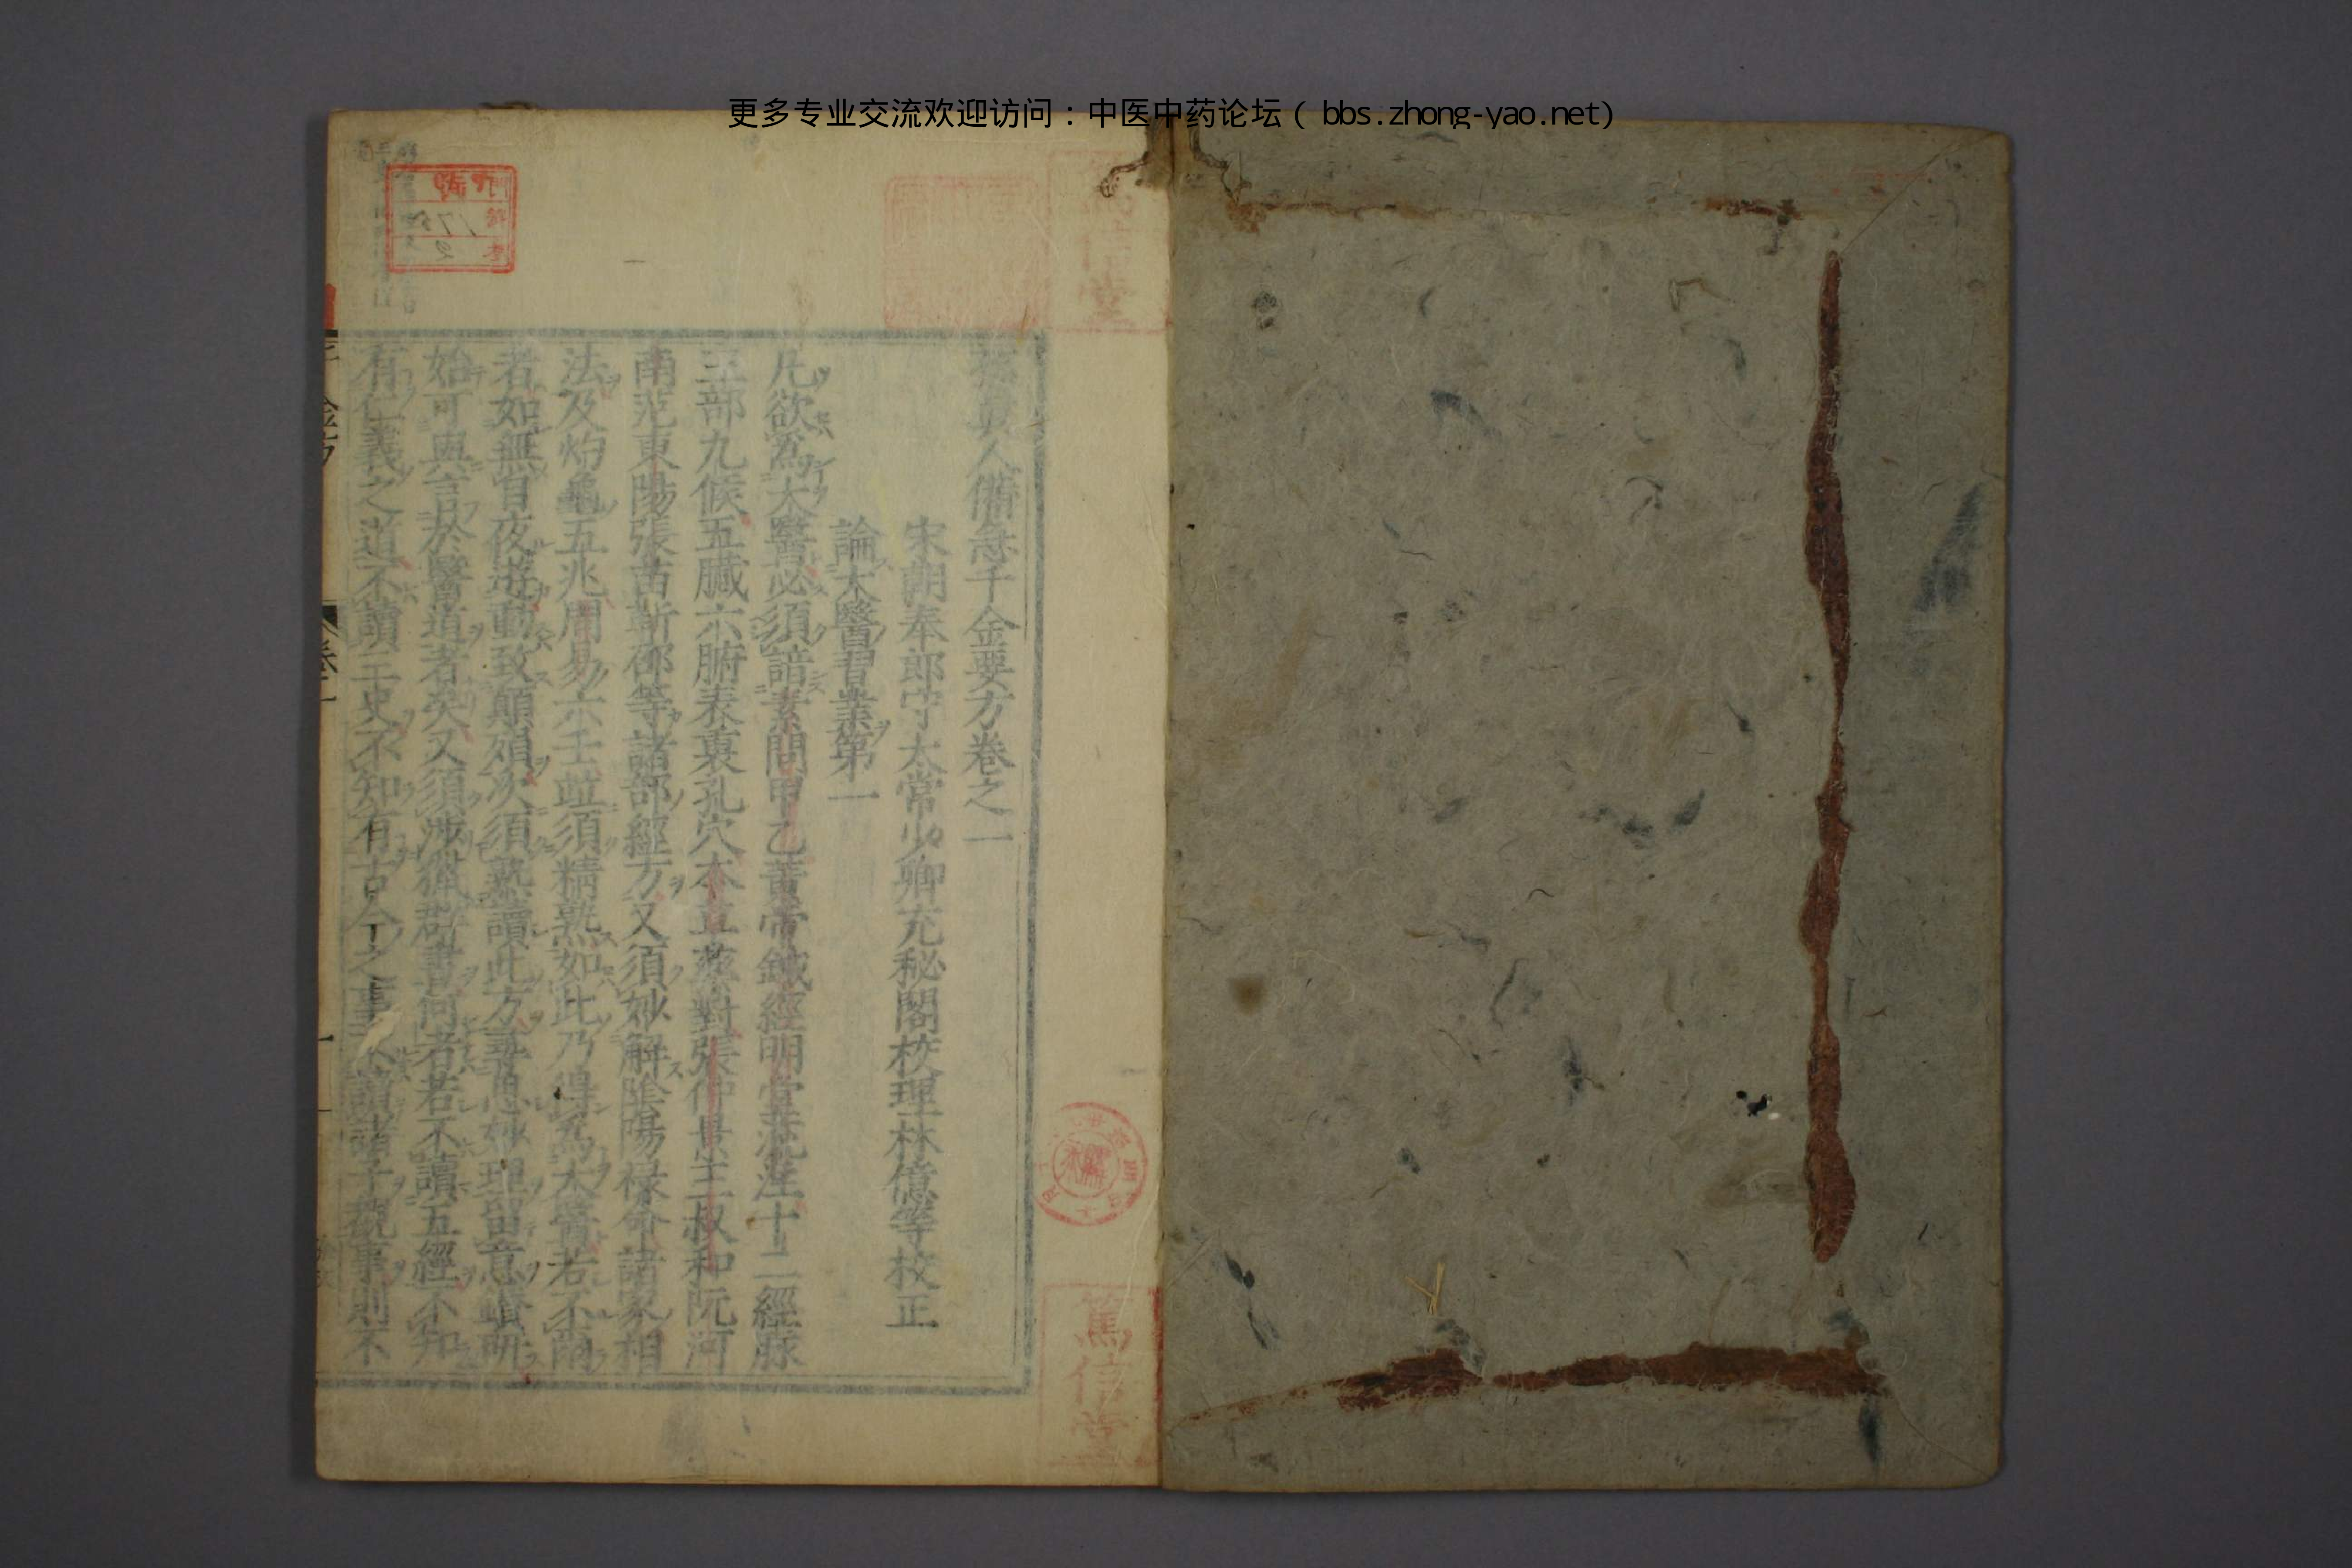 更多专业交流欢迎访问：中医中药论坛（bbs.zhong-yao.net)
孫真人備急千金要方卷之一
宋朝奉郎守太常少卿充秘閣校理林億等校正
論大醫習業第一
凡欲爲大醫必須諳素問甲乙黄帝鍼經明堂流注十二經脉
三部九候五臓六腑表裏孔穴本草藥對張仲景王叔和阮河
南范東陽張苗靳邵等諸部經方又須妙解陰陽祿命諸家相
法及灼龜五兆周易六壬竝須精熟如此乃得爲大醫若不爾
者如無目夜遊動致顛殞次須熟讀此方尋思妙理留意鑚研
始可與言於醫道者矣又須涉獵群書何者若不讀五經不知
有仁義之道不讀三史不知有古今之事不讀諸子覩事則不
篤信堂
篤信堂
卷一